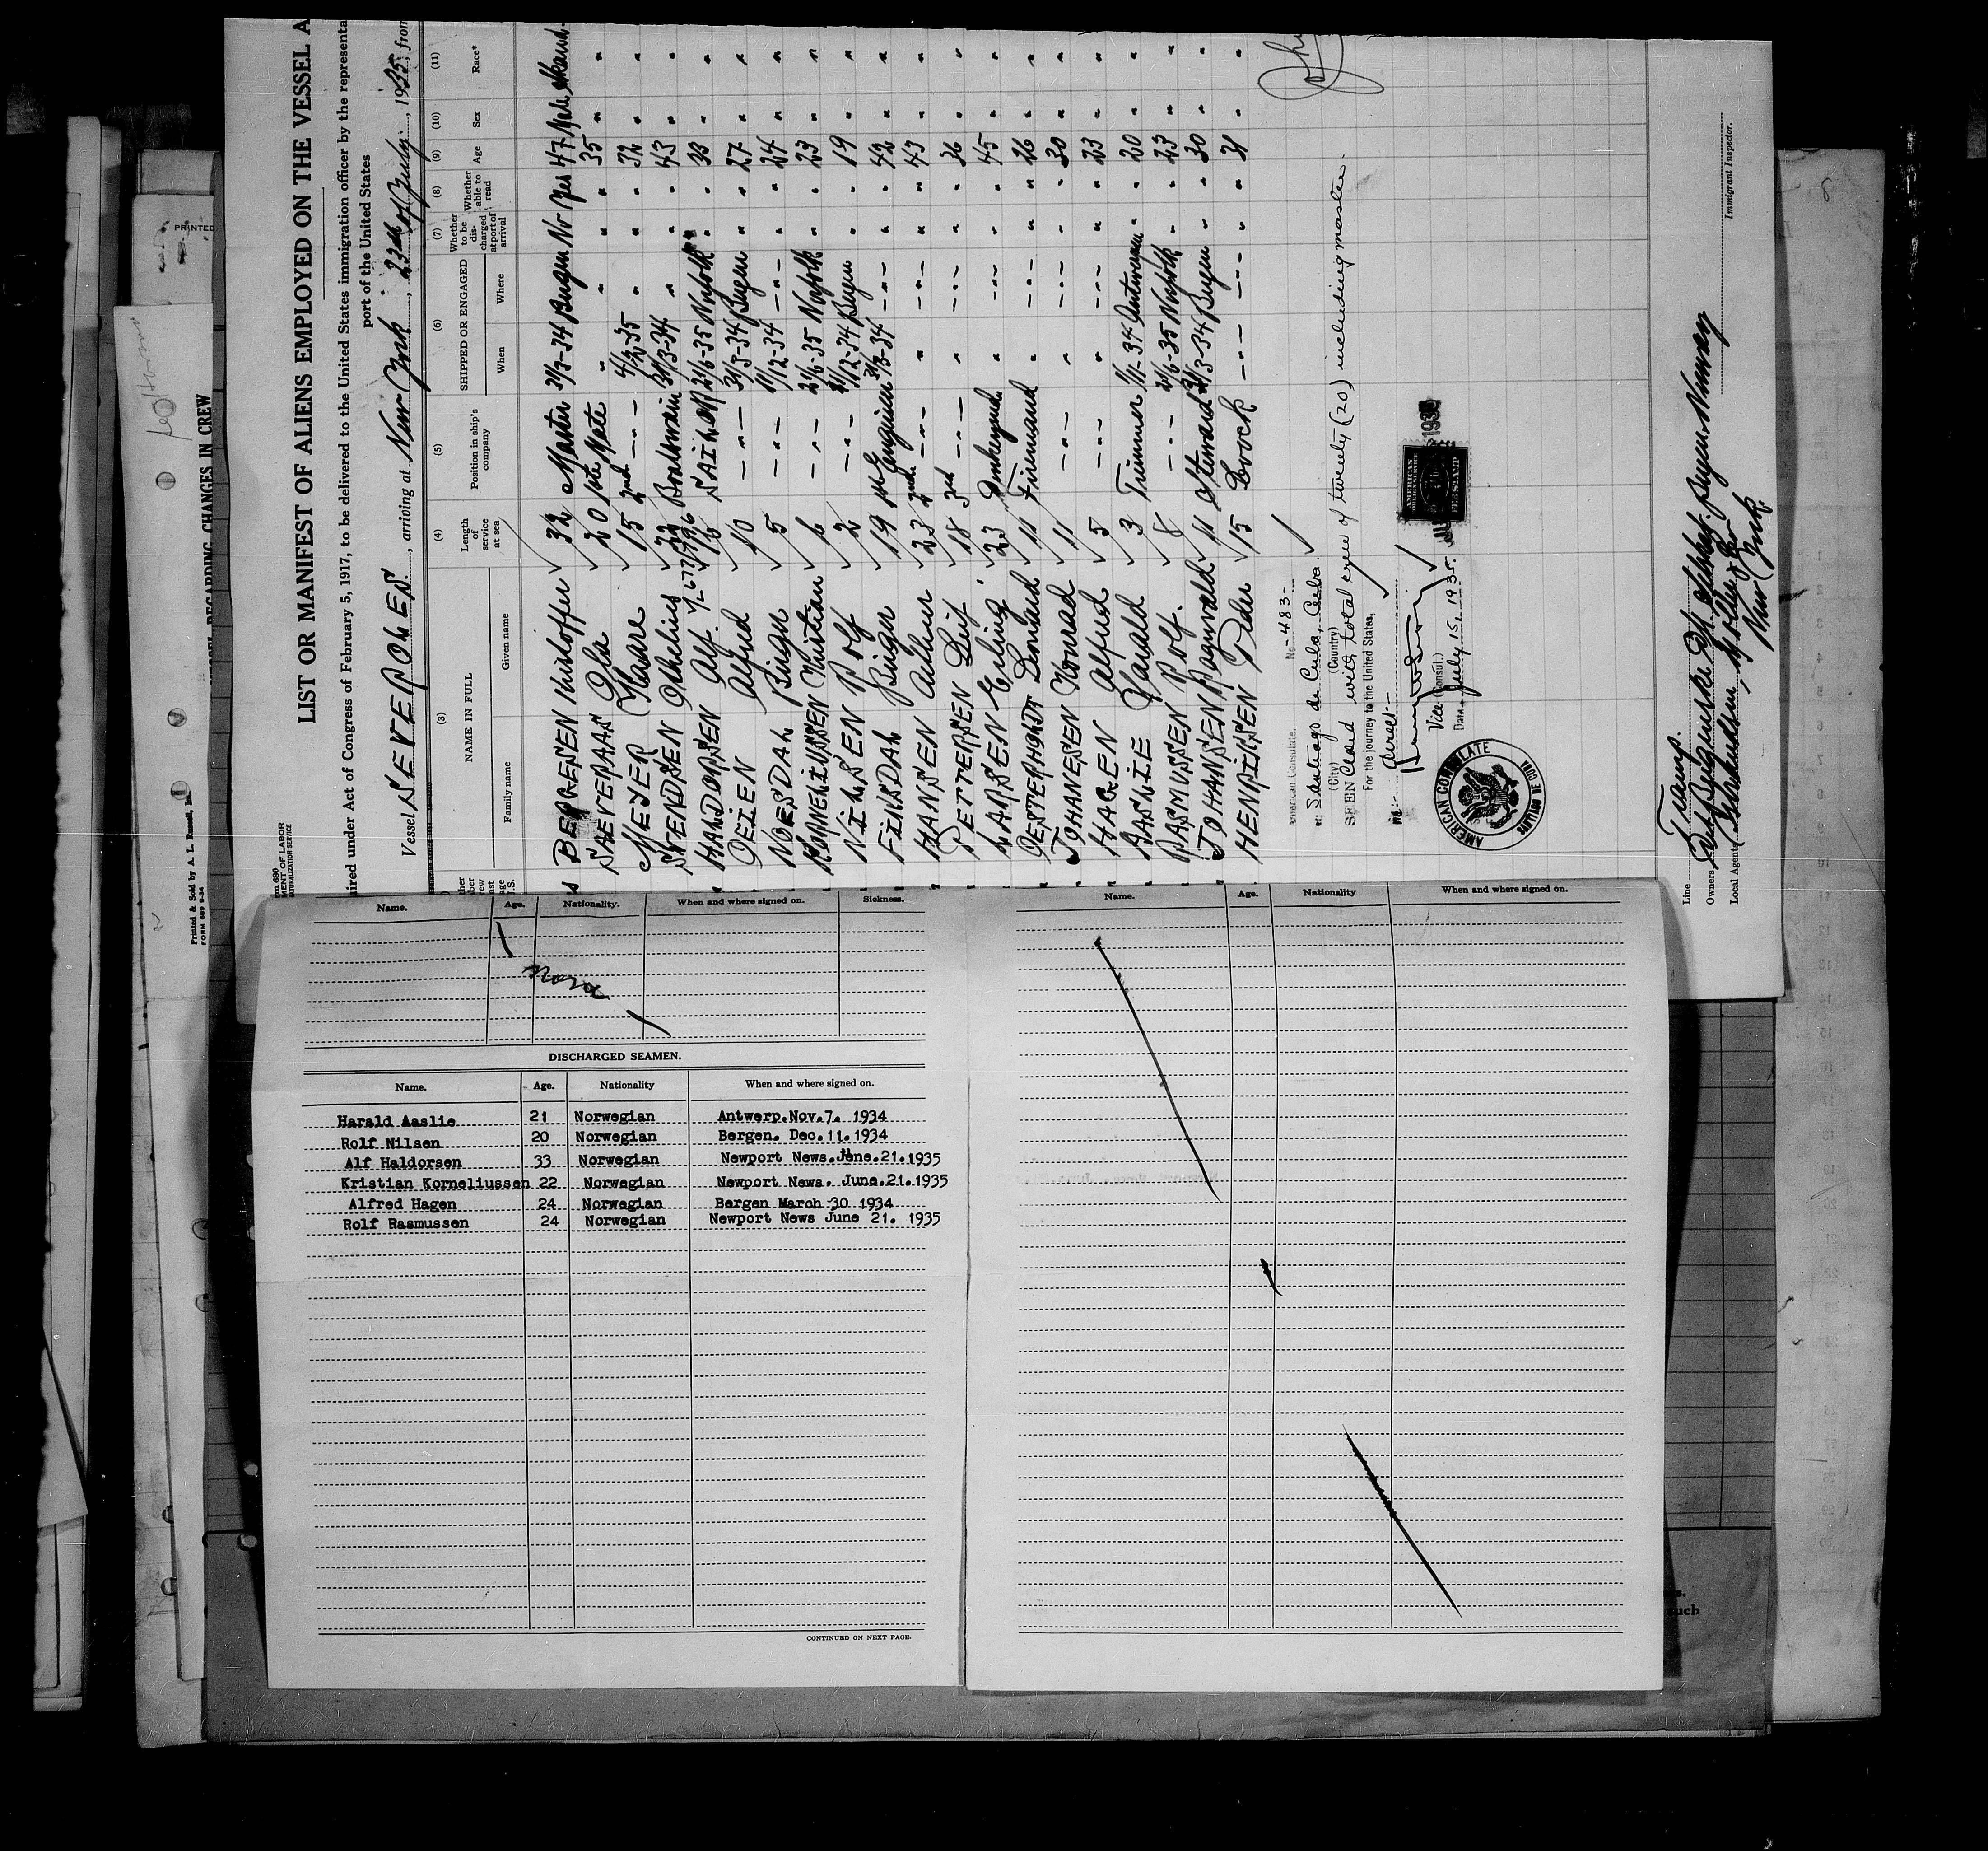 LIST OR MANIFEST OF ALIENS EMPLOYED ON THE VESSEL A
ired under Act of Congress of February 5, 1917, to be delivered to the United States immigration officer by the representa
port of the United States
Vessel SEVEROLES., arriving at New York, 23th of Juli, 1935, from
(3) (4) (5) (6) (7) (8) (9) (10) (11)
NAME IN FULL Length of service at sea Position in ship's company SHIPPED OR ENGAGED Whether to be discharged at port of arrival Whether able to read Age Sex Race*
Family name Given name When Where
BERGESEN Kristoffer 32 Master 31/3-34 Bergen No Yes 47 Male Skand.
SÆVERAAS Ola 20 1ste Mate " " " " 35 " "
MEYER Haare 15 2nd --- 4/2-35 " " " 32 " "
SVENDSEN Othelius 22 Boatswain 31/3-34 " " " 43 " "
HALDORSEN Alf. 16 SAILOR 21/6-35 Norfolk " " 33 " "
OEIEN Alfred 10 -"- 31/3-34 Bergen " " 27 " "
NOESDAL Birger 5 -"- 11/12-34 -"- " " 24 " "
KORNELIUSSEN Kristian 6 -"- 21/6-35 Norfolk " " 23 " "
NILSEN Rolf 2 -"- 11/12-34 Bergen " " 19 " "
FINSDAL Birger 19 1st Engineer 31/3-34 --- " " 42 " "
HANSEN Arthur 23 2nd --- " --- " " 43 " "
PETTERSEN Leif 18 3rd --- " --- " " 26 " "
LARSEN Erling 23 Donkeymd. " --- " " 45 " "
OESTERHOLDT Lennard 11 Firemand " --- " " 26 " "
JOHANESEN Konrad 11 -"- " --- " " 30 " "
HAGEN Alfred 5 -"- " --- " " 23 " "
AASLIE Harald 3 Trimmer 7/11-34 Antwerpen " " 20 " "
RASMUSSEN Rolf. 8 --- 21/6-35 Norfolk " " 23 " "
JOHANSEN Ragnvald 11 Steward 31/3-34 Bergen " " 30 " "
HENRICSEN Peder 15 Coock --- --- " " 31 " "
American Consulate. No. -483-
at Santiago de Cuba, Cuba
(City) (Country)
SEEN Crew list with total crew of twenty (20) including master.
For the journey to the United States,
direct
Vice (Consul.)
Date July 15, 1935.
AMERICAN CONSULATE
SANTIAGO DE CUBA
AMERICAN FOREIGN SERVICE
FEE STAMP
Line Tramp.
Owners
Local Agents
New York
Immigrant Inspector.
PRINTED
VESSEL REGARDING CHANGES IN CREW
Printed & Sold by A. L. Russell, Inc.
FORM 689 2-34
Name. Age. Nationality. When and where signed on. Sickness.
None
DISCHARGED SEAMEN.
Name. Age. Nationality When and where signed on.
Harald Aaslie 21 Norwegian Antwerp.Nov.7. 1934
Rolf Nilsen 20 Norwegian Bergen. Dec.11.1934
Alf Haldorsen 33 Norwegian Newport News.June.21.1935
Kristian Korneliussen 22 Norwegian Newport News. June.21.1935
Alfred Hagen 24 Norwegian Bergen March 30 1934
Rolf Rasmussen 24 Norwegian Newport News June 21. 1935
CONTINUED ON NEXT PAGE.
Name. Age. Nationality When and where signed on.